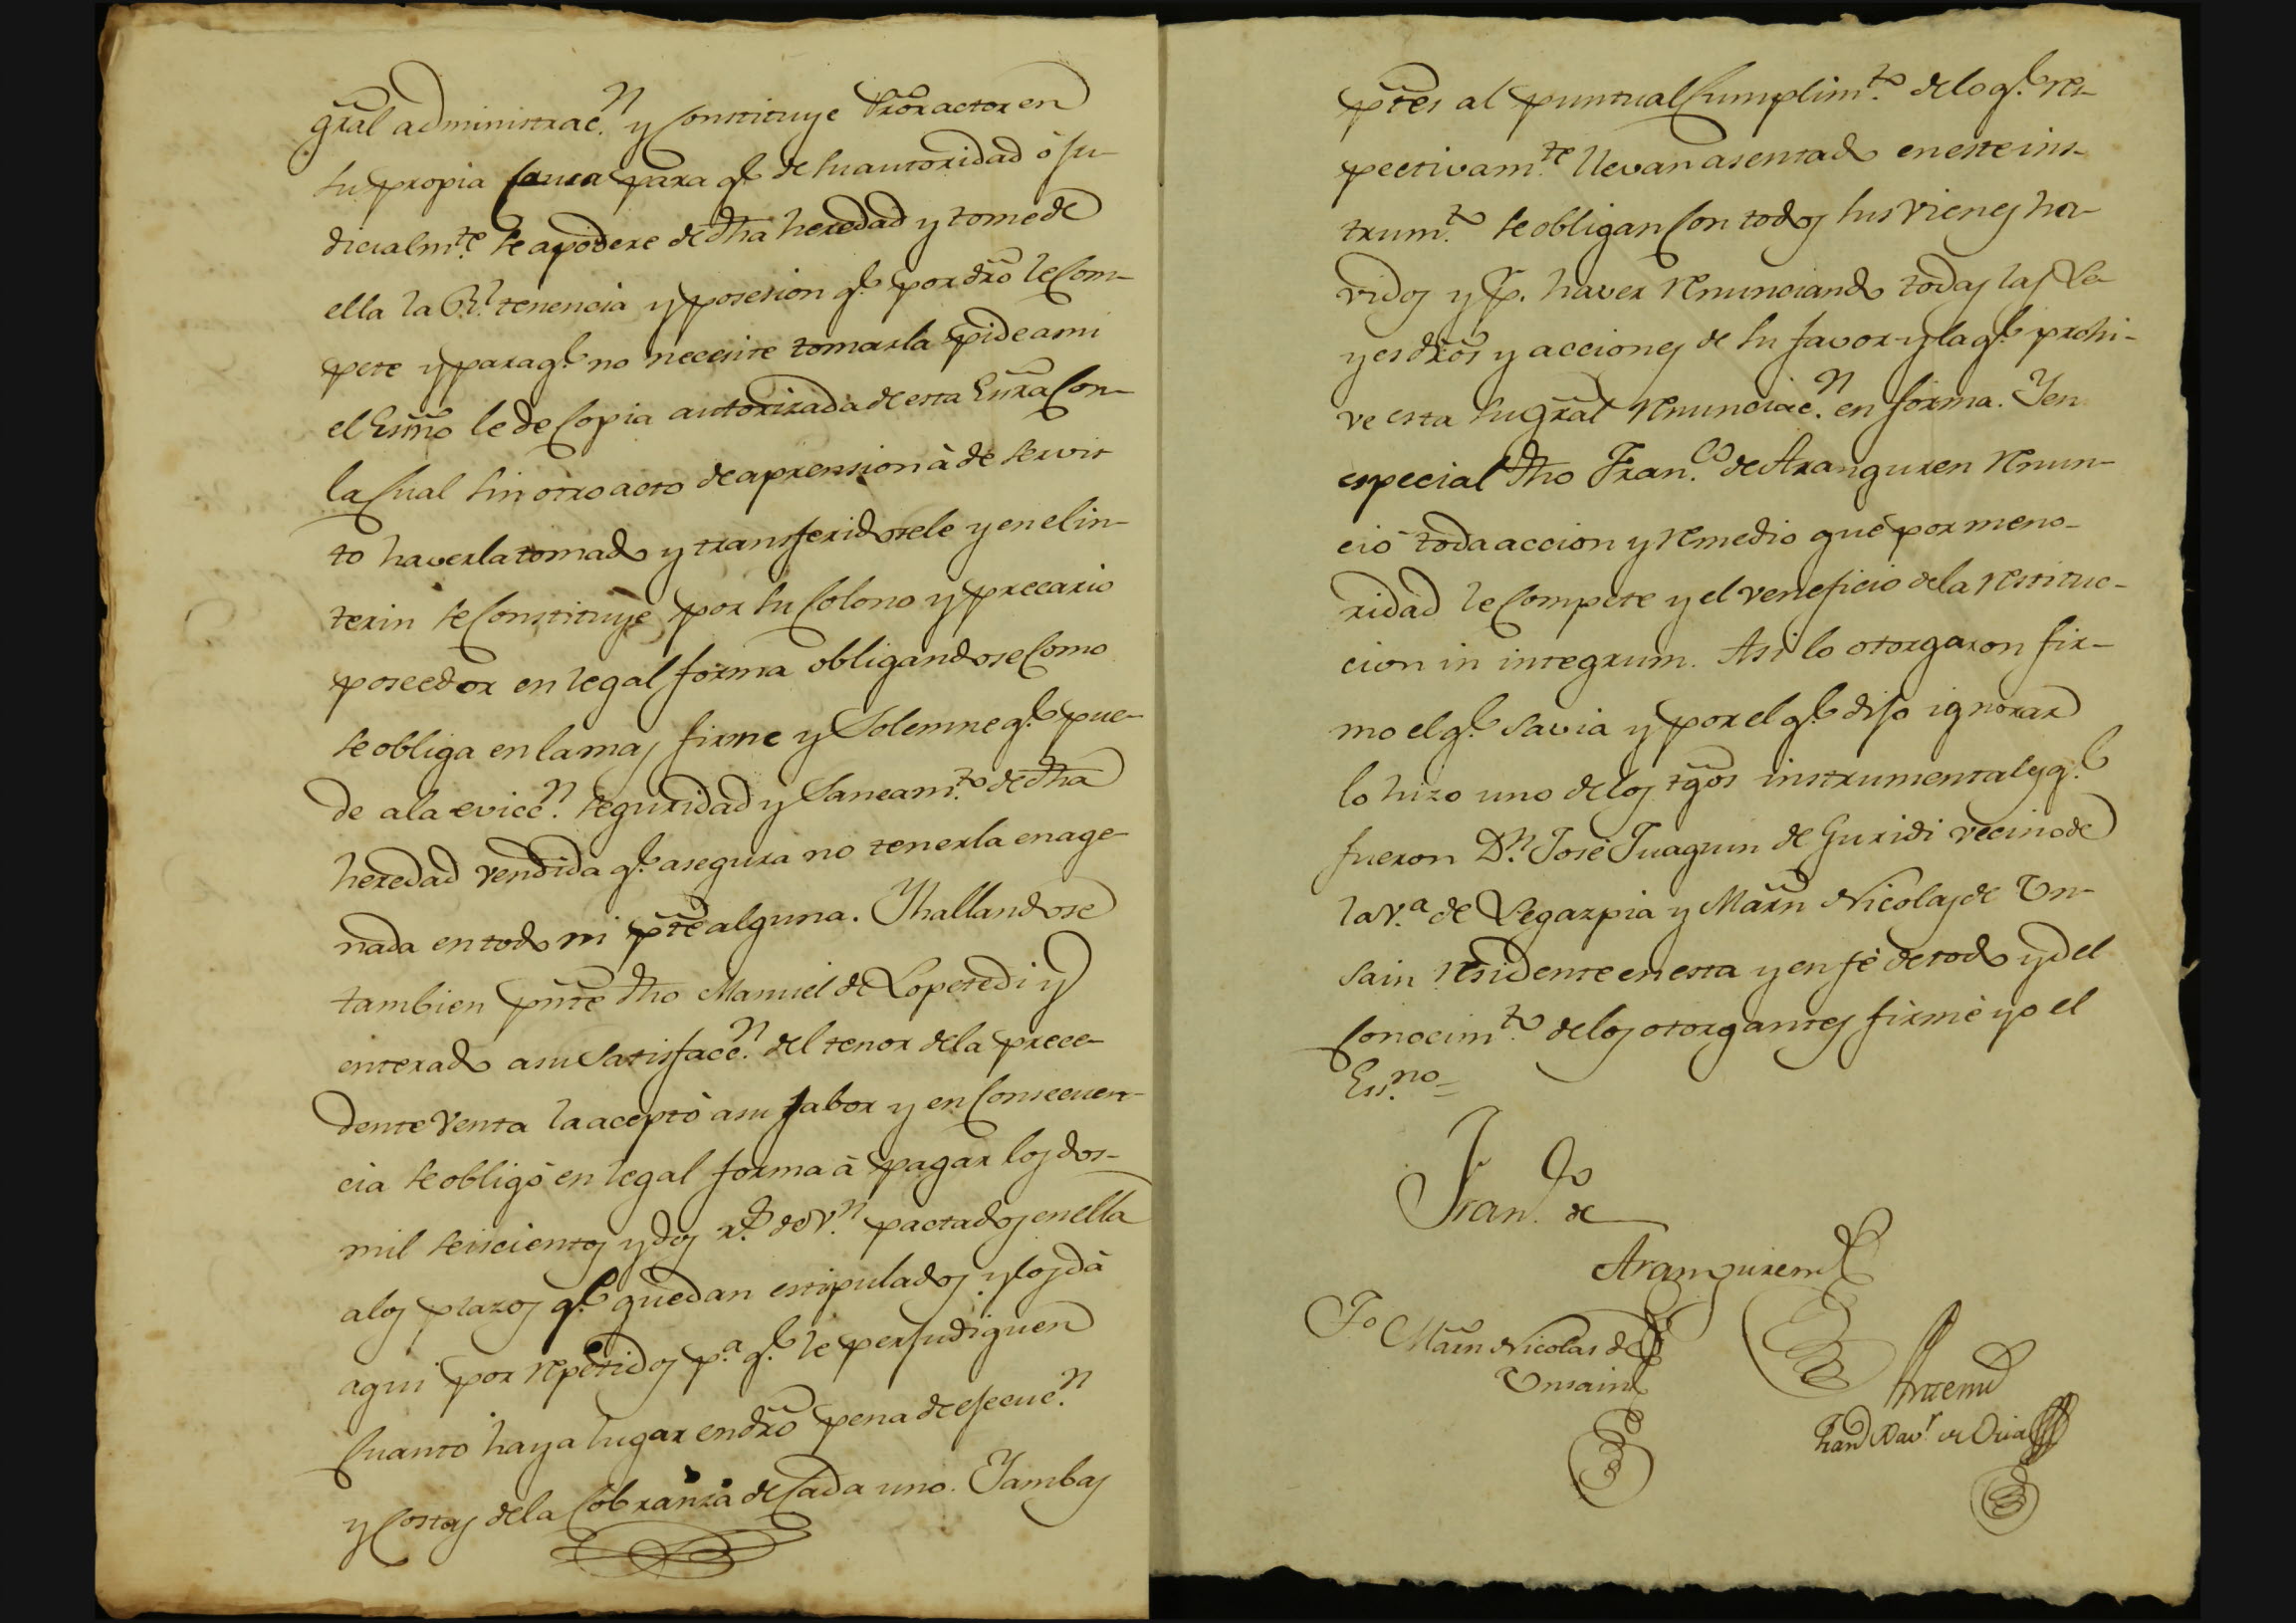 gral administrac.n y Constituye Pror actor en
su propia Causa para q.e de su autoridad ò Ju-
dicialm.te se apodere de dha heredad y tome de
ella la R.l tenencia y posesion q.e por dro le Com-
pete y para q.e no necesite tomarla pide a mi
el Essno le de Copia autorizada de esta Essra Con
la Cual sin otro acto de aprension à de ser vis-
to haverla tomado y transferidosele y en el in-
terin se Constituye por su Colono y precario
poseedor en legal forma obligandose Como
se obliga en la mas firme y Solemne q.e pue-
de a la evicc.n seguridad y Saneam.to de dha
heredad vendida q.e asegura no tenerla enage-
nada en todo ni pte alguna. Y hallandose
tambien pnte dho Manuel de Lopetedi y
enterado a su Satisfacc.n del tenor de la prece-
dente Venta la aceptò a su fabor y en Consecuen-
cia se obligò en legal forma à pagar los dos-
mil seiscientos y dos r.s de v.n pactados en ella
a los plazos q.e quedan estipulados y los dà
aqui por repetidos p.a q.e le perjudiquen
Cuanto haya lugar en dro pena de ejecuc.n
y Costas de la Cobranza de Cada uno. Y ambas
ptes al puntual Cumplim.to de lo q.e res-
pectivam.te llevan asentado en este ins-
trum.to se obligan Con todos sus vienes ha-
vidos y p.r haver renunciando todas las Le-
yes dros y acciones de su favor y la q.e prohi-
ve esta su gral renunciac.n en forma. Y en
especial dho Fran.co de Aranguren renun-
ciò toda accion y remedio que por meno-
ridad le Compete y el veneficio de la restituc-
cion in integrum. Asi lo otorgaron fir-
mo el q.e savia y por el q.e dijo ignorar
lo hizo uno de los tgos instrumentales q.e
fueron D.n Josè Juaquin de Guridi vecino de
la v.a de Legazpia y Marn Nicolas de Un-
sain residente en esta y en fè de todo y del
Conocim.to de los otorgantes firmè yo el
Ess.no=
Fran.co de
Aranguren
To Marn Nicolas de
Unsain
Antemi